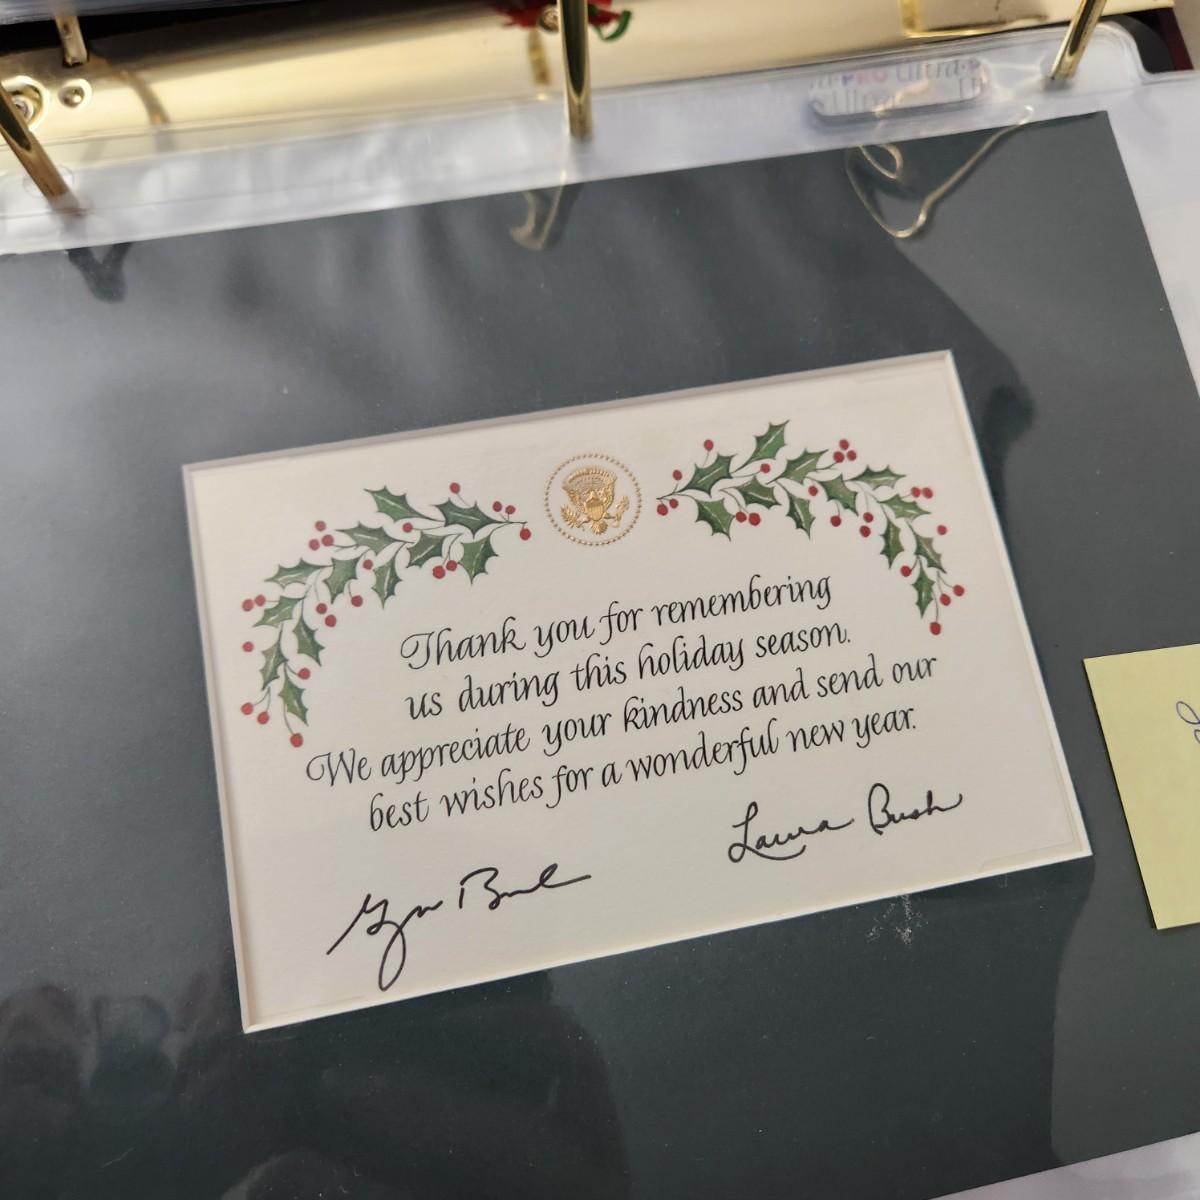 Ultra·PRO Ultra·P
Ultra
Thank you for remembering
us during this holiday season.
We appreciate your kindness and send our
best wishes for a wonderful new year.
George Bush
Laura Bush